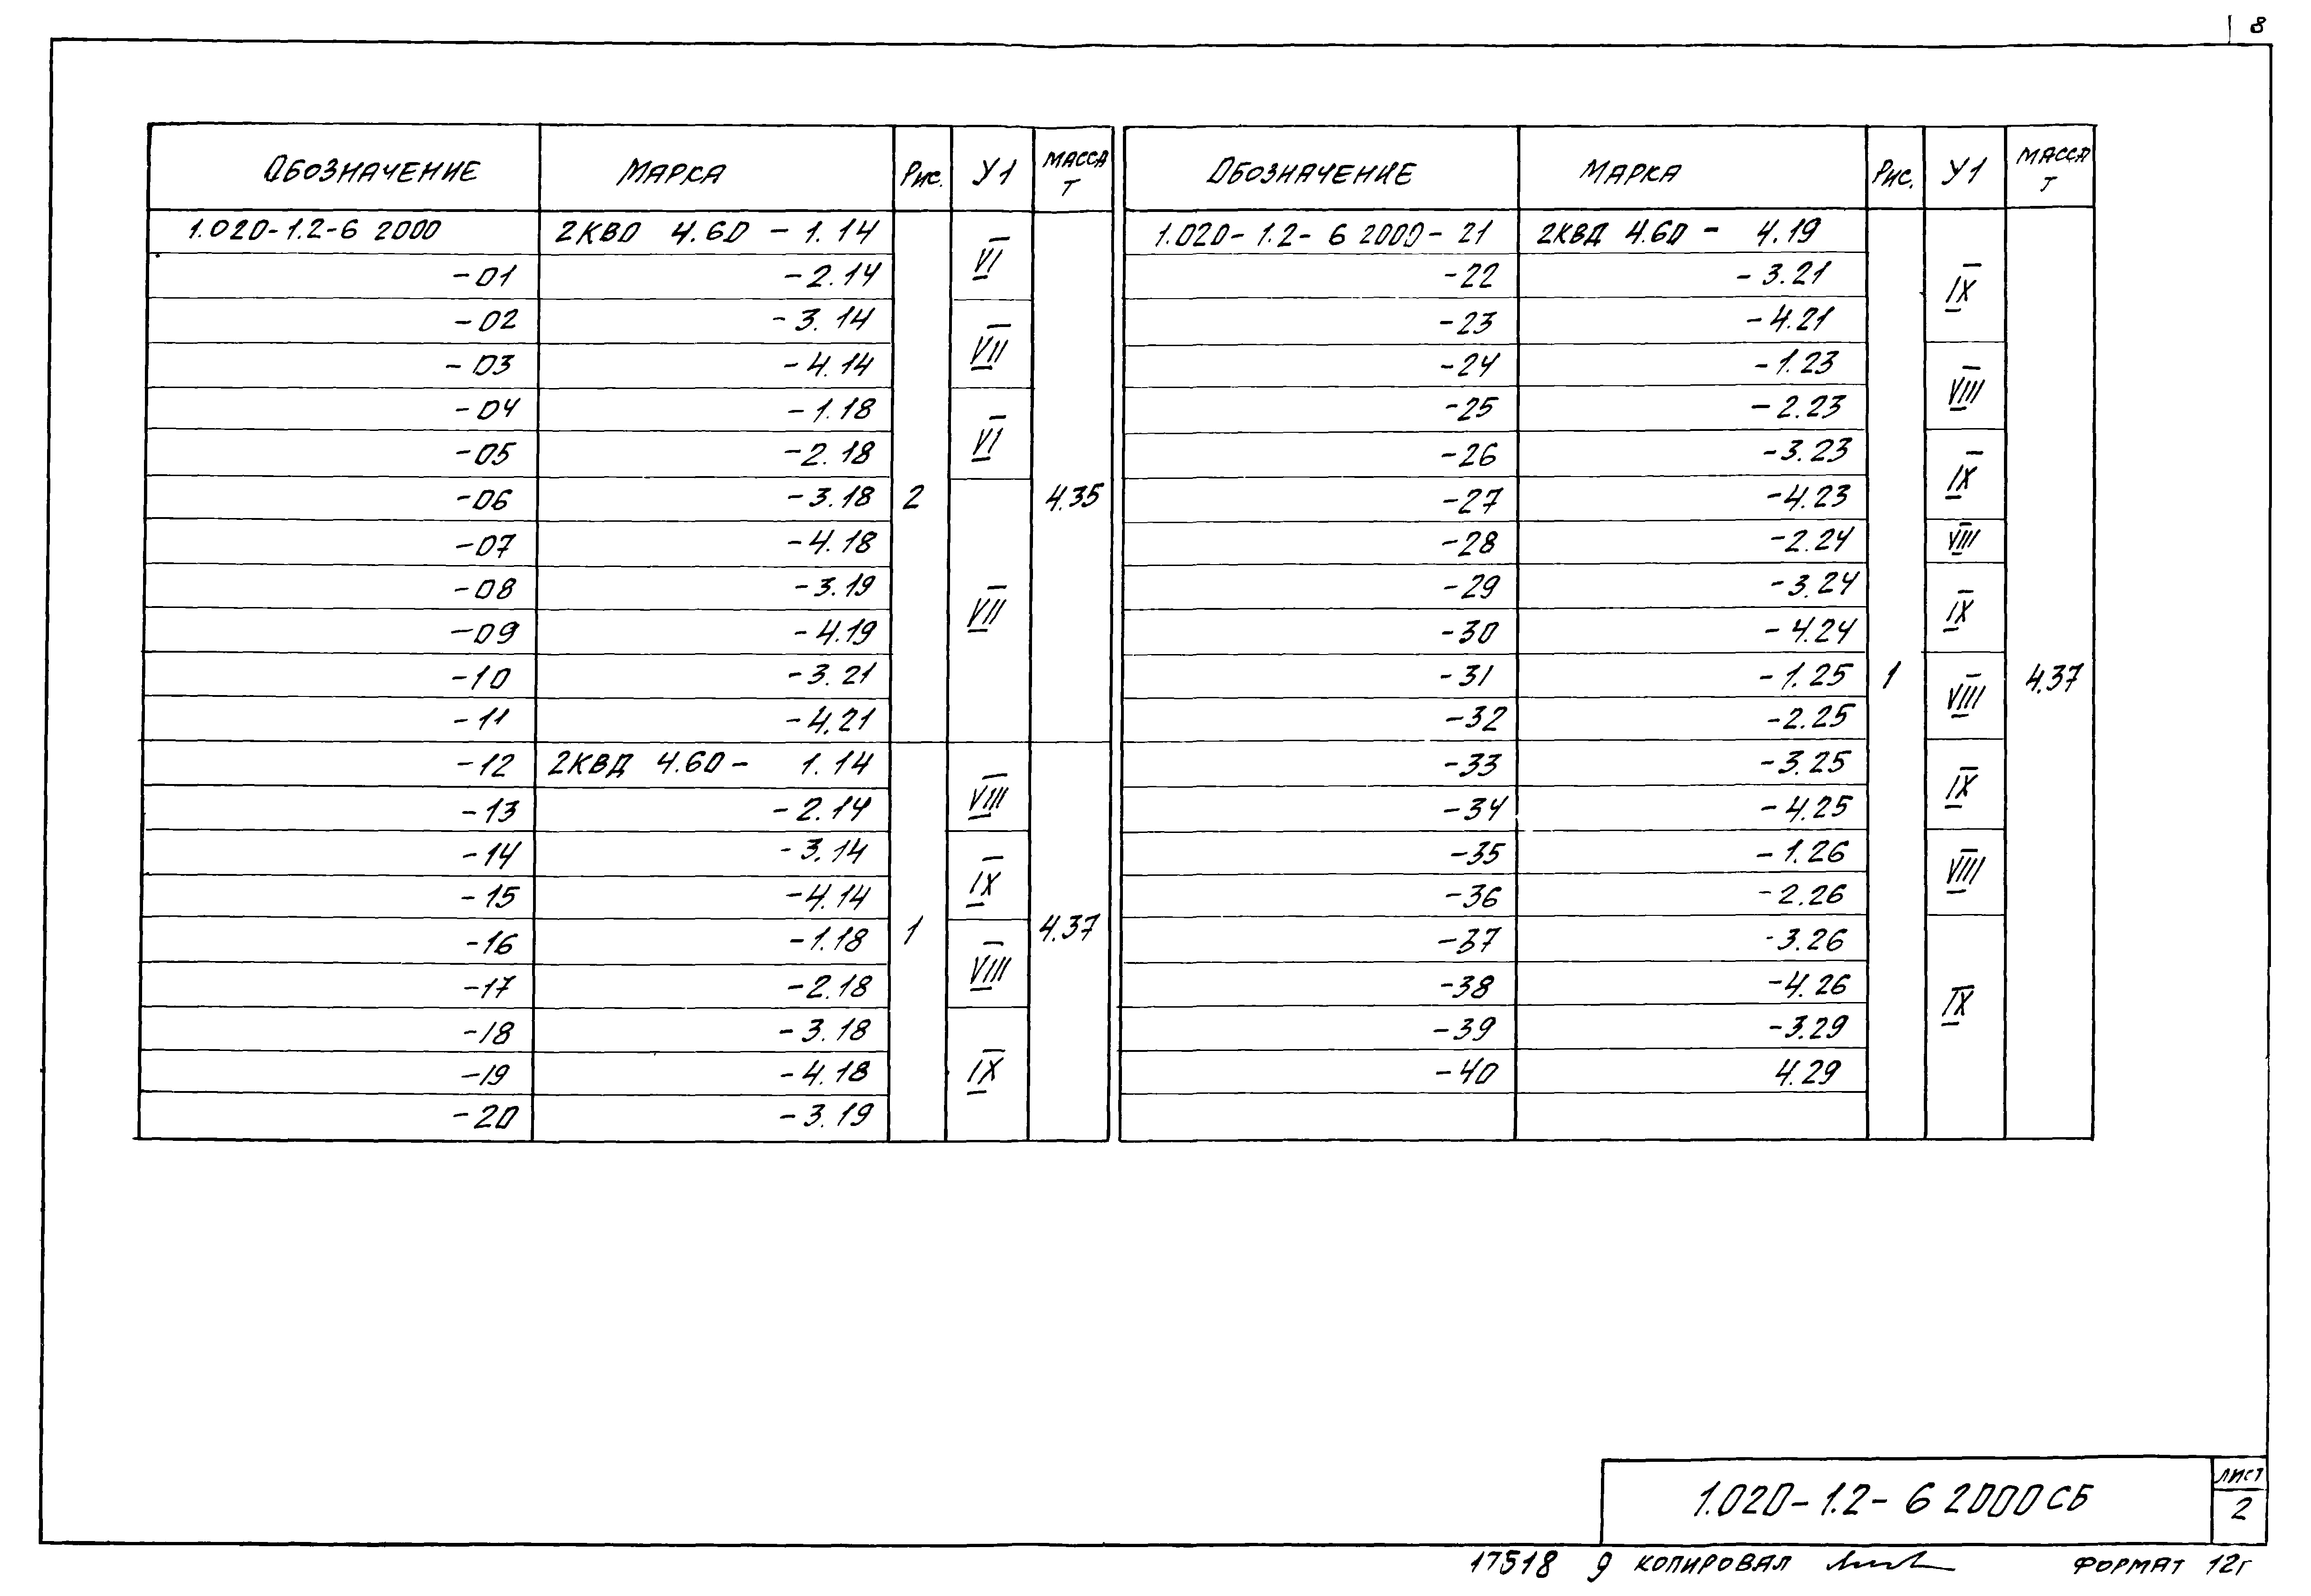 8
Обозначение Марка Рис. У1 Масса т
1.020-1.2-6 2000 2КВО 4.60 - 1.14 VI
-01 -2.14
-02 -3.14 VII
-03 -4.14
-04 -1.18 VI
-05 -2.18
-06 -3.18 2 4.35
-07 -4.18
-08 -3.19 VII
-09 -4.19
-10 -3.21
-11 -4.21
-12 2КВД 4.60- 1.14 VIII
-13 -2.14
-14 -3.14 IX
-15 -4.14
-16 -1.18 1 VIII 4.37
-17 -2.18
-18 -3.18 IX
-19 -4.18
-20 -3.19
Обозначение Марка Рис. У1 Масса т
1.020-1.2-6 2000-21 2КВД 4.60 - 4.19 IX
-22 -3.21
-23 -4.21
-24 -1.23 VIII
-25 -2.23
-26 -3.23 IX
-27 -4.23
-28 -2.24 VIII
-29 -3.24 IX
-30 -4.24
-31 -1.25 1 VIII 4.37
-32 -2.25
-33 -3.25 IX
-34 -4.25
-35 -1.26 VIII
-36 -2.26
-37 -3.26 IX
-38 -4.26
-39 -3.29
-40 4.29
1.020-1.2-6 2000СБ
Лист
2
17518 9 Копировал Формат 12г